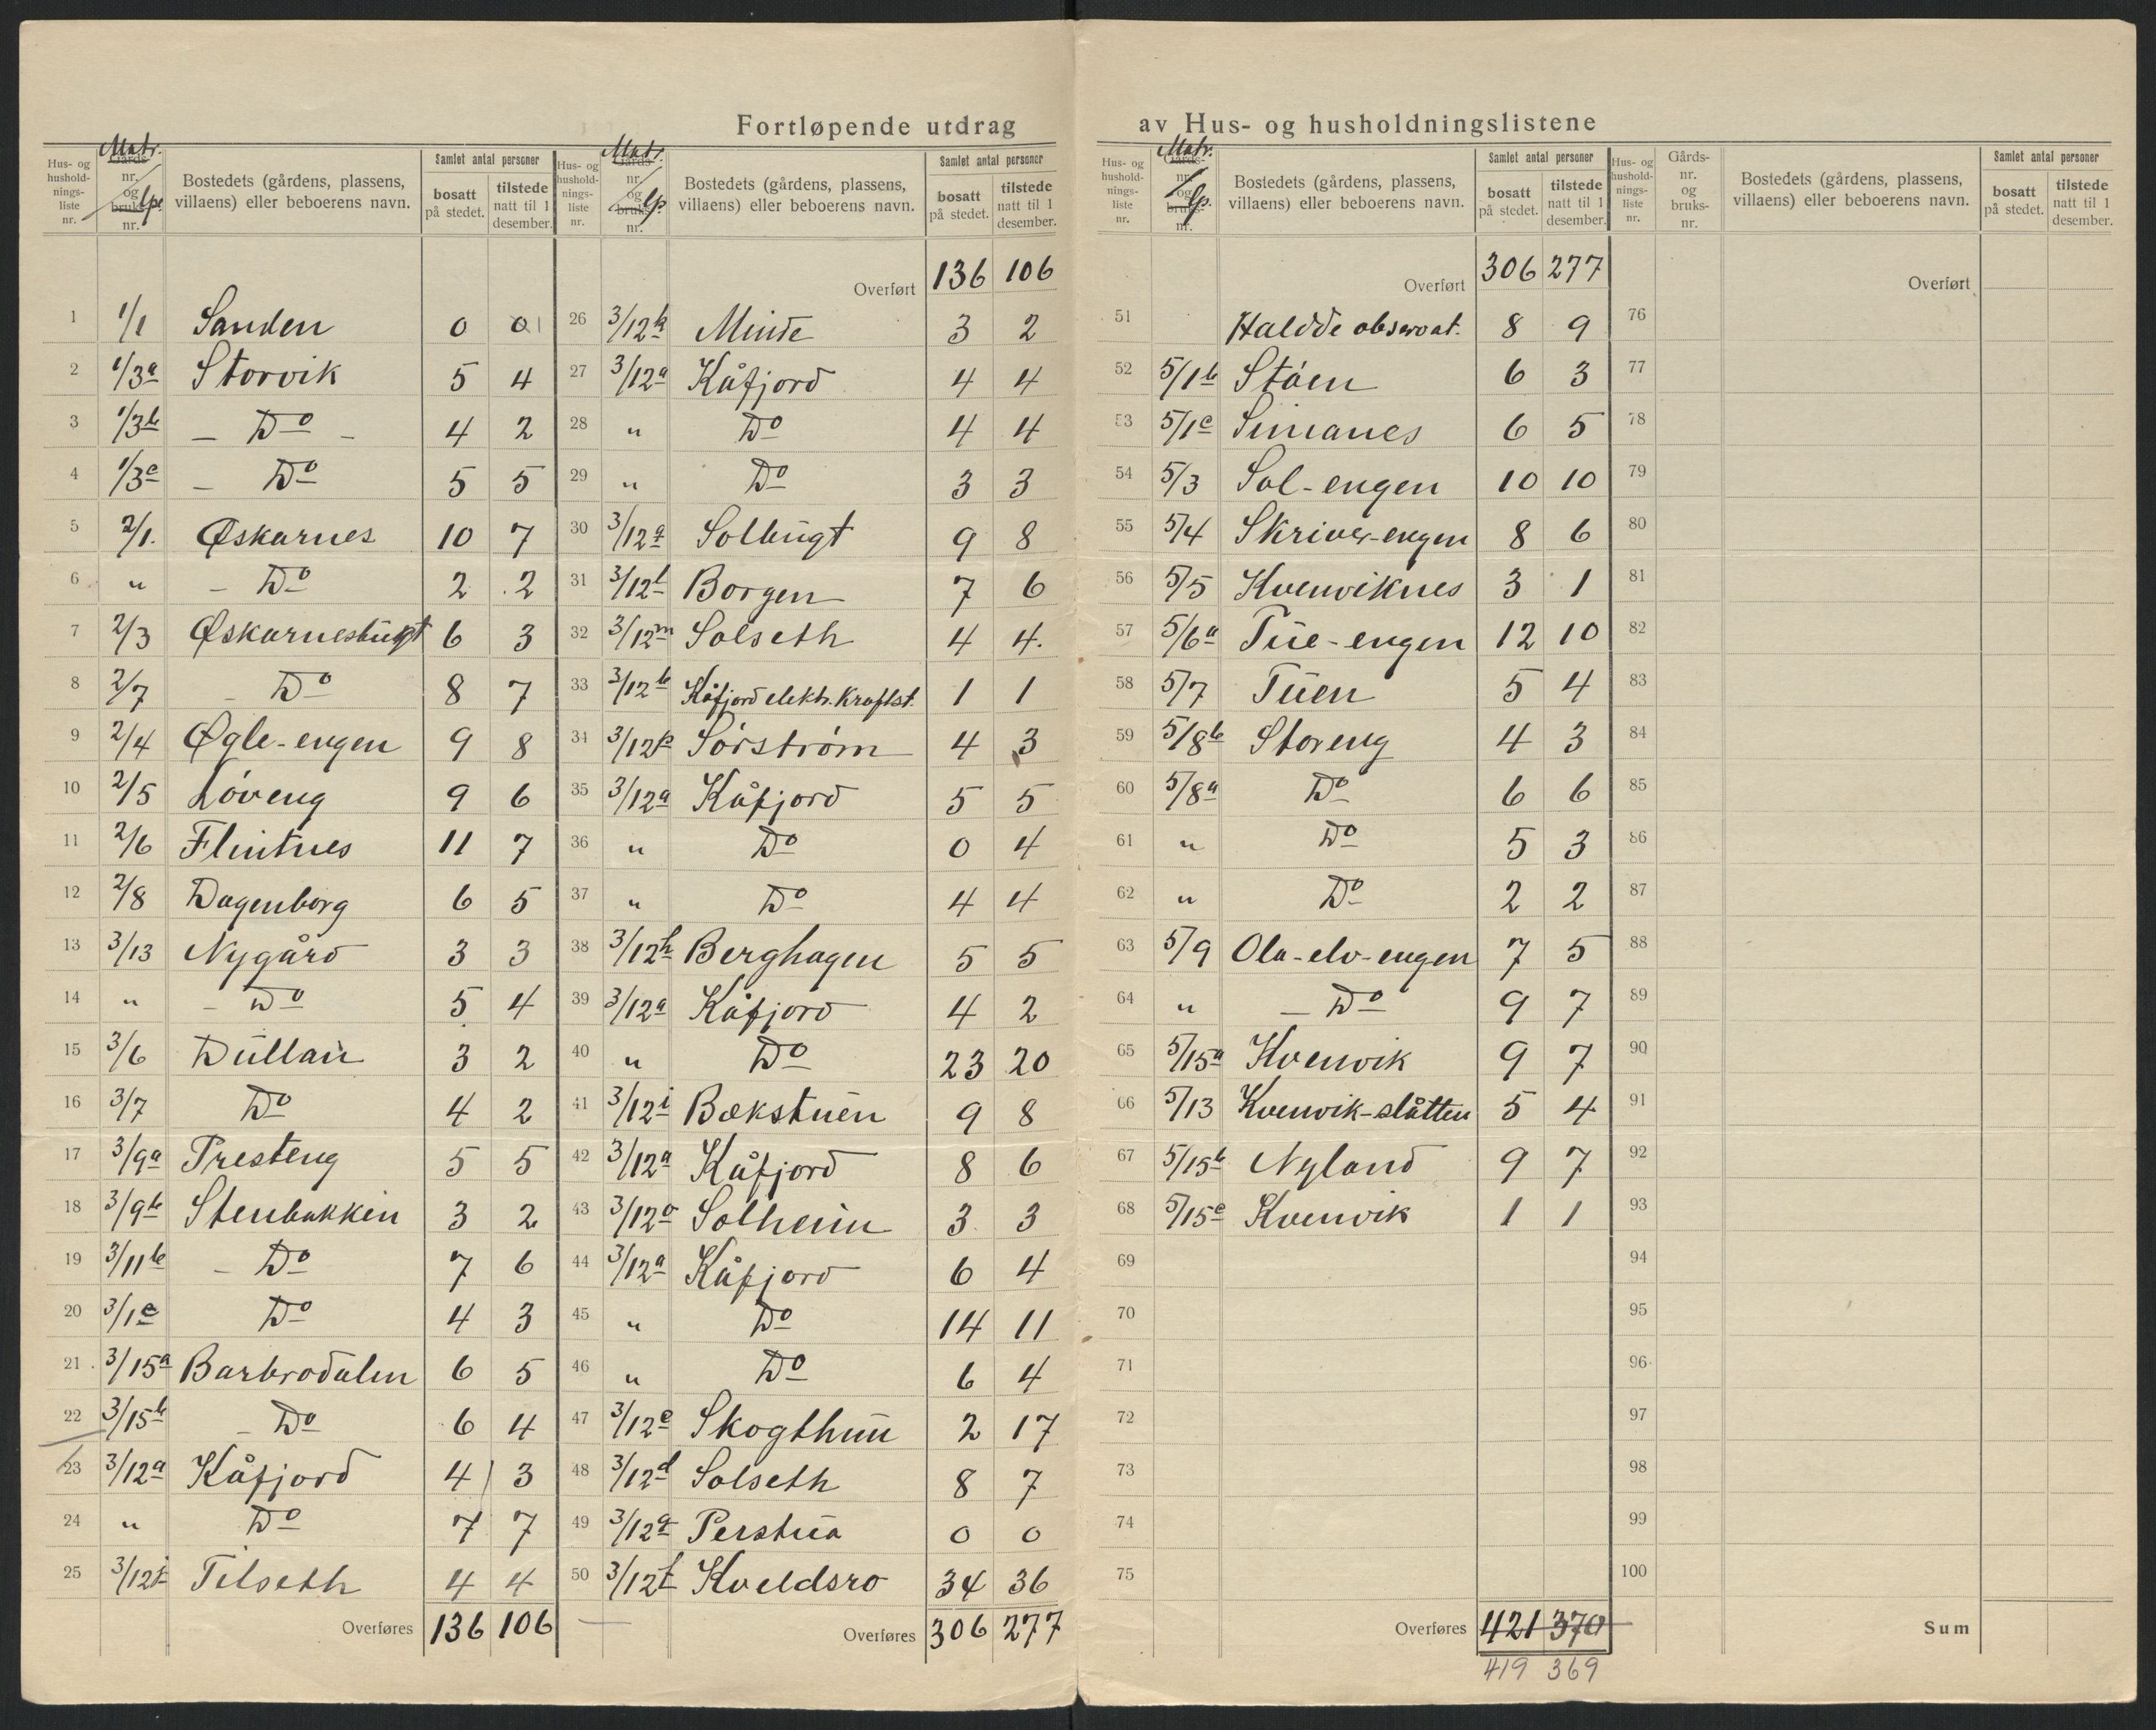 Fortløpende utdrag av Hus- og husholdningslistene
Hus- og husholdnings-liste nr. | Matr. Gårds- nr. og Lp. bruks- nr. | Bostedets (gårdens, plassens, villaens) eller beboerens navn. | Samlet antal personer | bosatt på stedet. | tilstede natt til 1 desember.
1 1/1 Sanden 0 0
2 1/3a Storvik 5 4
3 1/3b – Do – 4 2
4 1/3c – Do 5 5
5 2/1. Øskarnes 10 7
6 " – Do 2 2
7 2/3 Øskarnesbugt 6 3
8 2/7 – Do 8 7
9 2/4 Øgle-engen 9 8
10 2/5 Løveng 9 6
11 2/6 Flintnes 11 7
12 2/8 Dagenborg 6 5
13 3/13 Nygård 3 3
14 " – Do 5 4
15 3/6 Dullau 3 2
16 3/7 Do 4 2
17 3/9a Presteng 5 5
18 3/9b Stenbakken 3 2
19 3/11b – Do 7 6
20 3/1c Do 4 3
21 3/15a Barbrodalen 6 5
22 3/15b – Do 6 4
23 3/12a Kåfjord 4 3
24 " Do 7 7
25 3/12 Tilseth 4 4
Overføres 136 106
Hus- og husholdnings-liste nr. | Matr. Gårds nr. og Lp. bruks- nr. | Bostedets (gårdens, plassens, villaens) eller beboerens navn. | Samlet antal personer | bosatt på stedet. | tilstede natt til 1 desember.
Overført 136 106
26 3/12 Minde 3 2
27 3/12a Kåfjord 4 4
28 " Do 4 4
29 " Do 3 3
30 3/12 Solbugt 9 8
31 3/12l Borgen 7 6
32 3/12m Solseth 4 4.
33 3/12b Kåfjord elektr. Kraftst. 1 1
34 3/12p Sørstrøm 4 3
35 3/12a Kåfjord 5 5
36 " Do 0 4
37 " Do 4 4
38 3/12h Berghagen 5 5
39 3/12a Kåfjord 4 2
40 " Do 23 20
41 3/12i Bækstuen 9 8
42 3/12a Kåfjord 8 6
43 3/12o Solheim 3 3
44 3/12a Kåfjord 6 4
45 " Do 14 11
46 " Do 6 4
47 3/12e Skogthun 2 17
48 3/12d Solseth 8 7
49 3/12 Perstua 0 0
50 3/12f Kveldsro 34 36
Overføres 306 277
Hus- og husholdnings-liste nr. | Matr. Gårds- nr. og Lp. bruks- nr. | Bostedets (gårdens, plassens, villaens) eller beboerens navn. | Samlet antal personer | bosatt på stedet. | tilstede natt til 1 desember.
Overført 306 277
51 Haldde observat. 8 9
52 5/1b Støen 6 3
53 5/1c Simanes 6 5
54 5/3 Sol-engen 10 10
55 5/4 Skriver-engen 8 6
56 5/5 Kvenviknes 3 1
57 5/6a Tue-engen 12 10
58 5/7 Tuen 5 4
59 5/8b Storeng 4 3
60 5/8a Do 6 6
61 " Do 5 3
62 " Do 2 2
63 5/9 Ola-elv-engen 7 5
64 " – Do 9 7
65 5/15a Kvenvik 9 7
66 5/13 Kvenvik-slåtten 5 4
67 5/15b Nyland 9 7
68 5/15c Kvenvik 1 1
69
70
71
72
73
74
75
Overføres 421 370
419 369
Hus- og husholdnings-liste nr. | Gårds- nr. og bruks- nr. | Bostedets (gårdens, plassens, villaens) eller beboerens navn. | Samlet antal personer | bosatt på stedet. | tilstede natt til 1 desember.
Overført
76
77
78
79
80
81
82
83
84
85
86
87
88
89
90
91
92
93
94
95
96
97
98
99
100
Sum